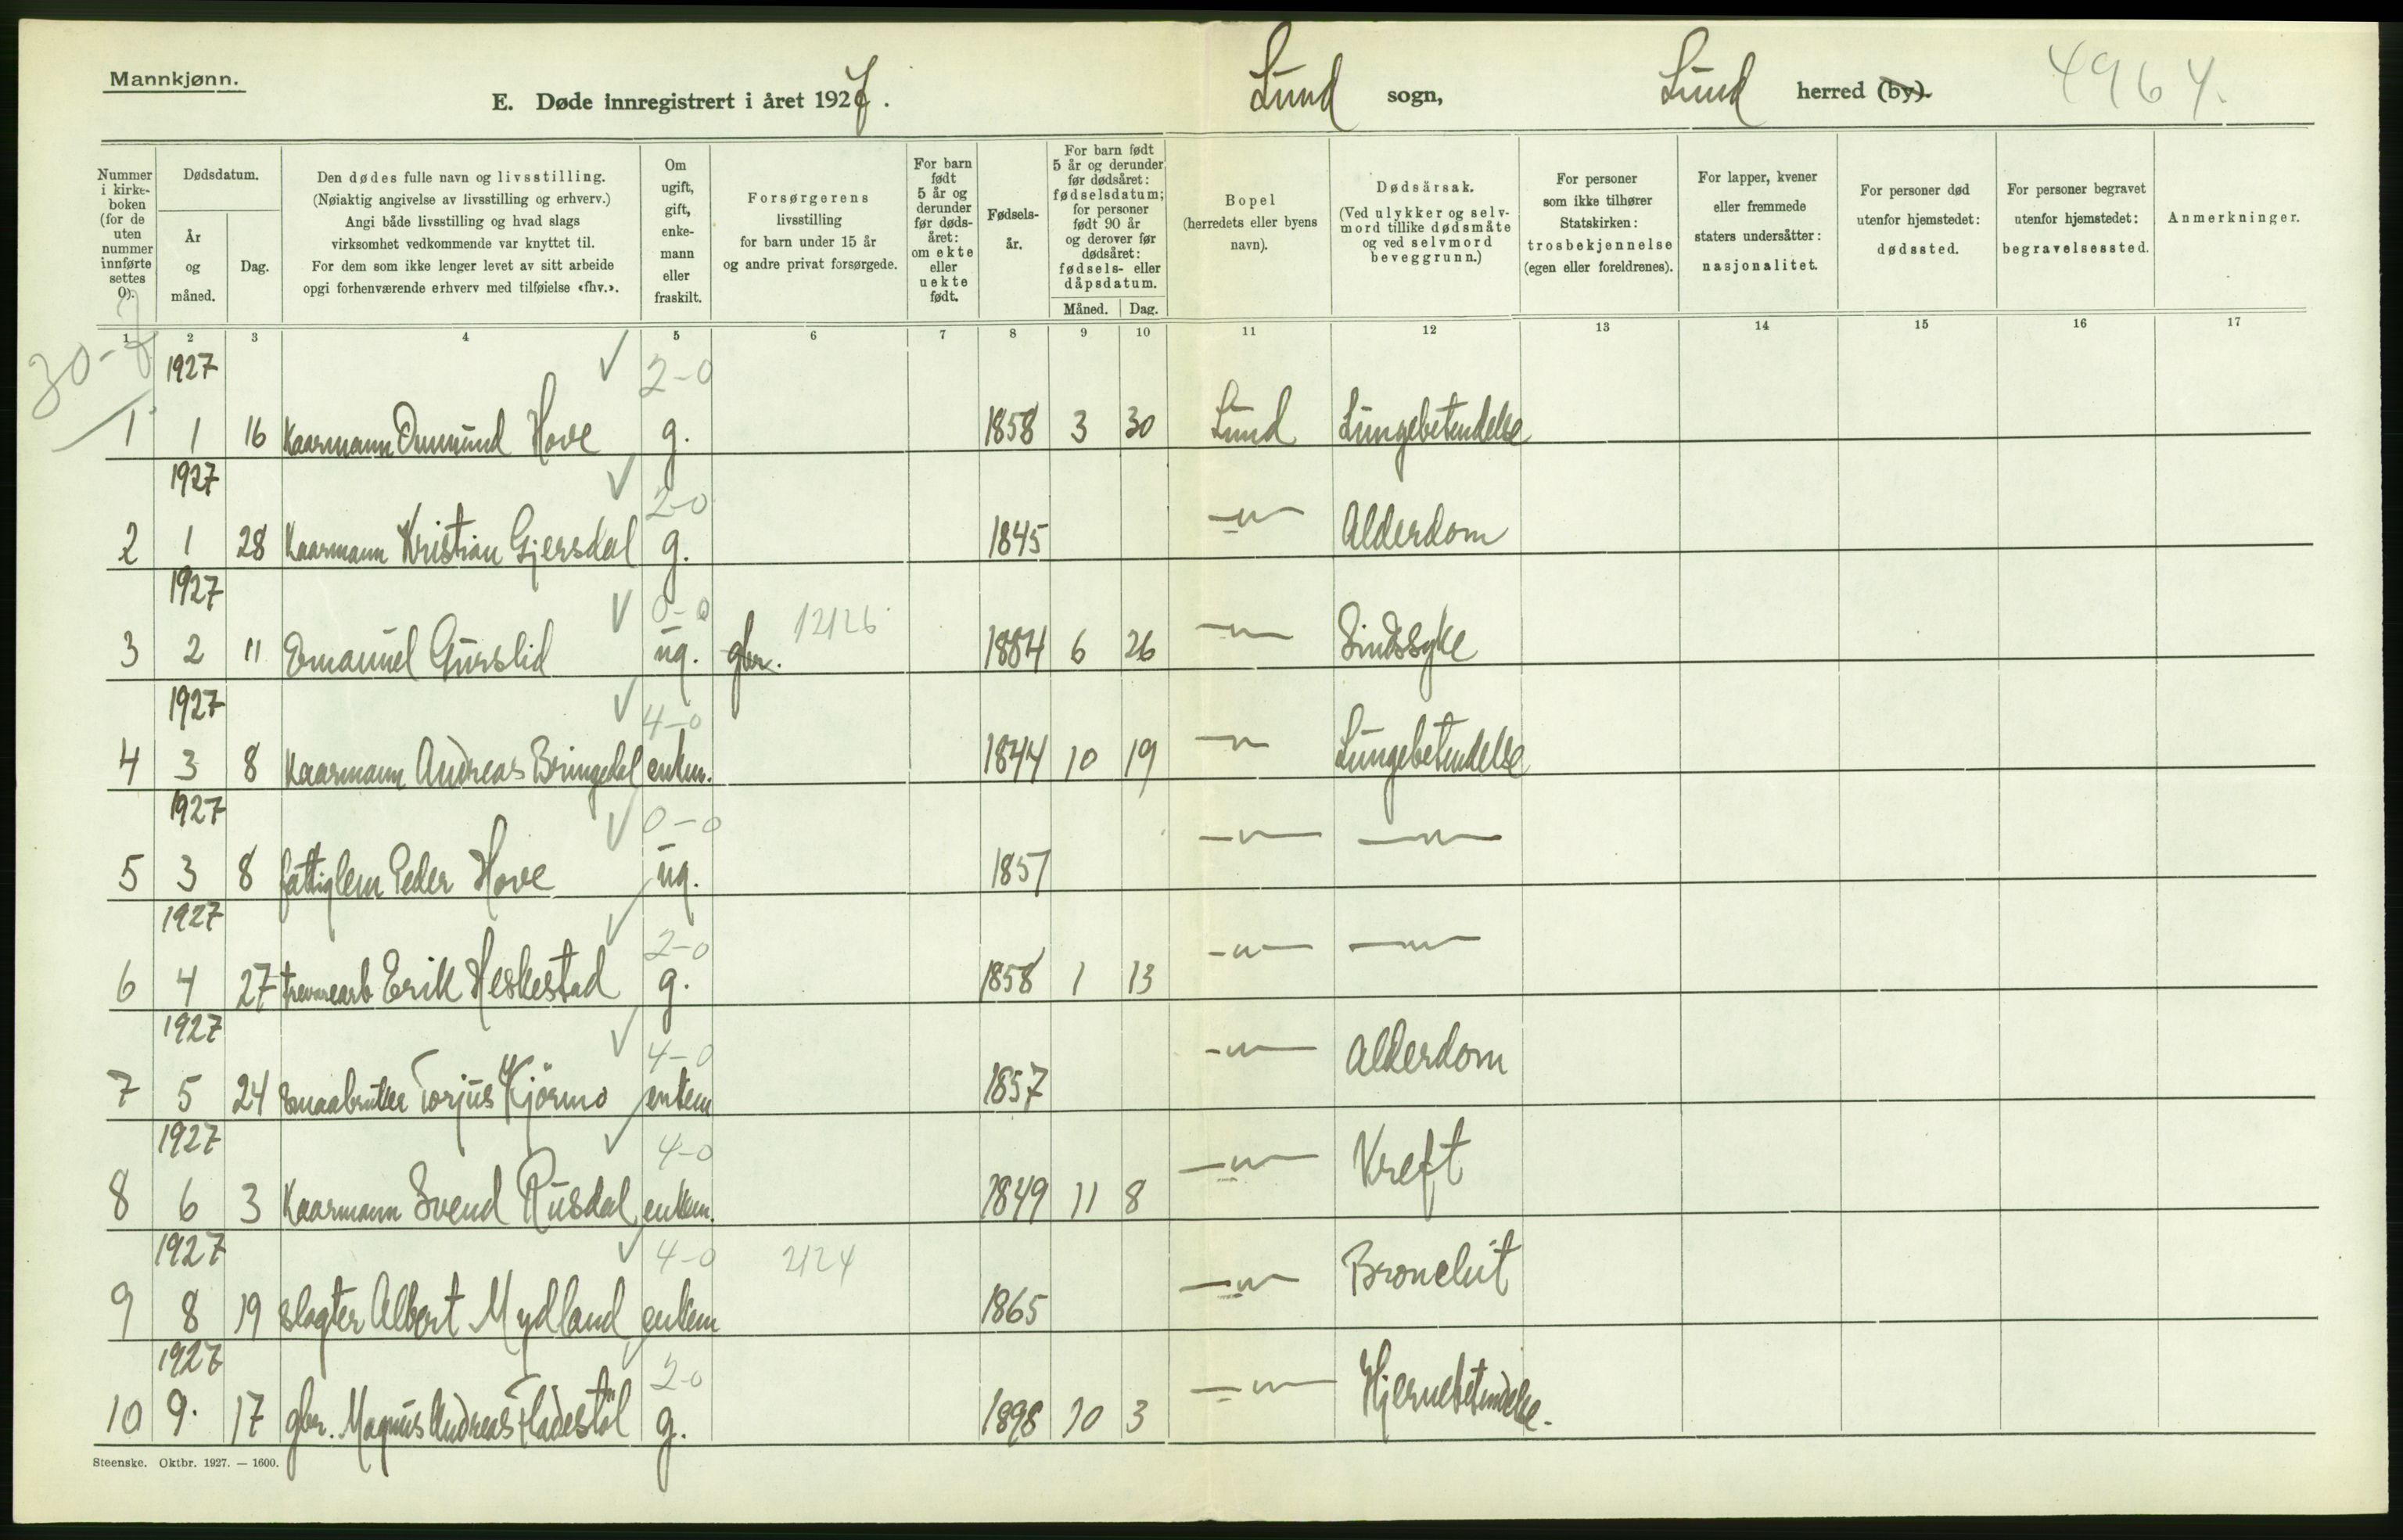 Mannkjønn.
E. Døde innregistrert i året 1927. Lund sogn, Lund herred (by). 4964.
Nummer i kirkeboken (for de uten nummer innførte settes 0).
Dødsdatum.
År og måned.
Dag.
Den dødes fulle navn og livsstilling.
(Nøiaktig angivelse av livsstilling og erhverv.)
Angi både livsstilling og hvad slags
virksomhet vedkommende var knyttet til.
For dem som ikke lenger levet av sitt arbeide
opgi forhenværende erhverv med tilføielse «fhv.».
Om ugift, gift, enkemann eller fraskilt.
Forsørgerens
livsstilling
for barn under 15 år
og andre privat forsørgede.
For barn født 5 år og derunder før dødsåret: om ekte eller uekte født.
Fødselsår.
For barn født 5 år og derunder før dødsåret: fødselsdatum; for personer født 90 år og derover før dødsåret: fødsels- eller dåpsdatum.
Måned. Dag.
Bopel
(herredets eller byens
navn).
Dødsårsak.
(Ved ulykker og selvmord tillike dødsmåte og ved selvmord beveggrunn.)
For personer
som ikke tilhører
Statskirken:
trosbekjennelse
(egen eller foreldrenes).
For lapper, kvener
eller fremmede
staters undersåtter:
nasjonalitet.
For personer død
utenfor hjemstedet:
dødssted.
For personer begravet
utenfor hjemstedet:
begravelsessted.
Anmerkninger.
1 2 3 4 5 6 7 8 9 10 11 12 13 14 15 16 17
30-7
1927 2-0
1 1 16 Kaarmann Ommund Hove g. 1858 3 30 Lund Lungebetendelse
1927 2-0
2 1 28 Kaarmann Kristian Gjersdal g. 1845 -"- Alderdom
1927 0-0 12126
3 2 11 Emanuel Gurslid ug. gbr. 1884 6 26 -"- Sindssyke
1927 4-0
4 3 8 Kaarmann Andreas Bringedal enkm. 1844 10 19 -"- Lungebetendelse
1927 0-0
5 3 8 fattiglem Peder Hove ug. 1857 -"- -"-
1927 2-0
6 4 27 trevarearb Erik Heskestad g. 1858 1 13 -"- -"-
1927 4-0
7 5 24 Smaabruker Torjus Kjörmo enkem 1857 -"- Alderdom
1927 4-0
8 6 3 Kaarmann Svend Rusdal enkem. 1849 11 8 -"- Kreft
1927 4-0 2124
9 8 19 slagter Albert Mydland enkem 1865 -"- Bronchit
1927 2-0
10 9. 17 gbr. Magnus Andreas Fladestöl g. 1898 10 3 -"- Hjernebetendelse.
Steenske. Oktbr. 1927. — 1600.